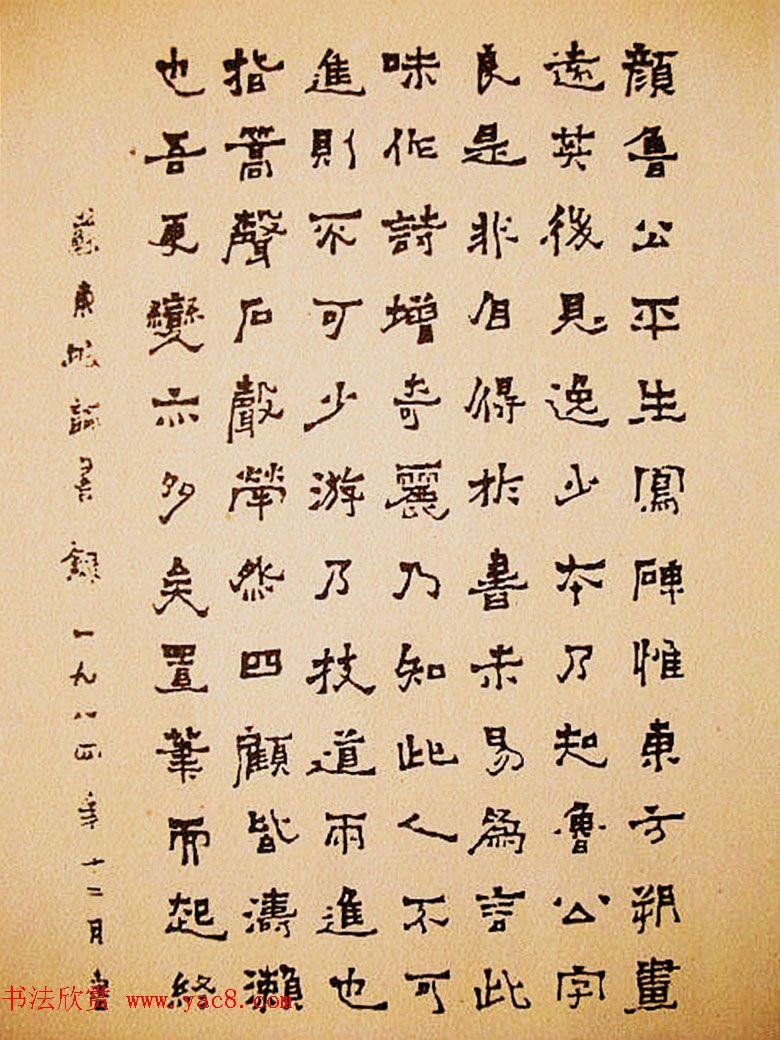 顔魯公平生寫碑惟東方朔畫
遠英後見逸少本乃知魯公字
良是非自得於書未易爲言此
味作詩增奇麗乃知此人不可
進則不可少游乃技道兩進也
指篙聲石聲犖然四顧皆濤瀨
也吾更變亦多矣置筆而起終
蘇東坡論書錄一九八四年十二月書
书法欣赏 www.yac8.com